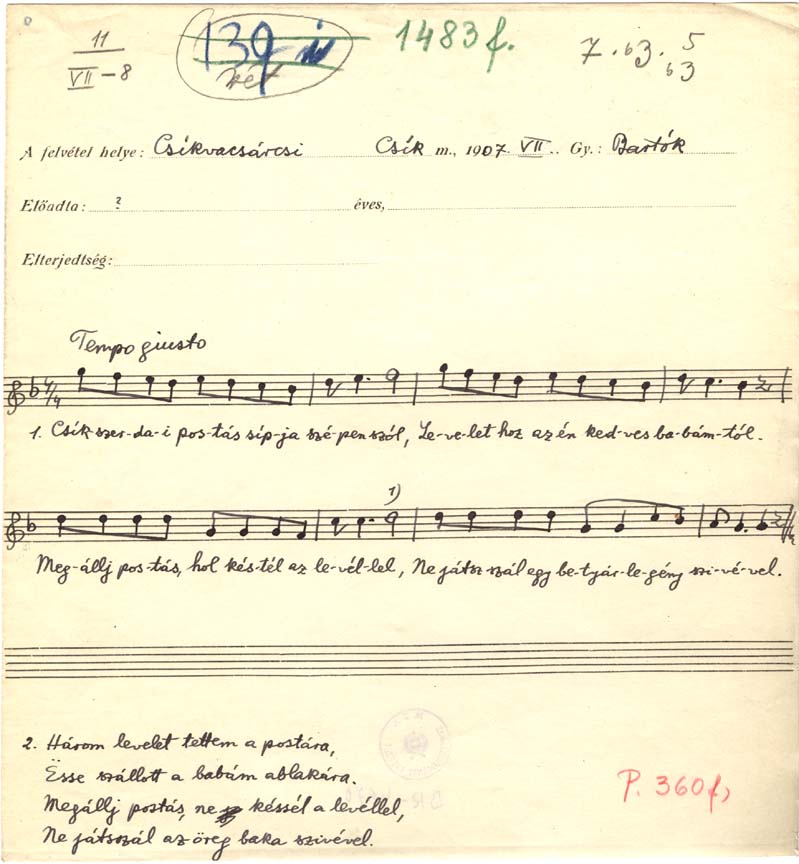 11
VII-8
139
két
1483f.
7.b3.5
b3
A felvétel helye: Csíkvacsárcsi Csík m., 1907. VII.. Gy.: Bartók
Előadta: ? éves,
Elterjedtség:
Tempo giusto
4/4
1. Csík-szer-da-i pos-tás síp-ja szé-pen szól, Le-ve-let hoz az én ked-ves ba-bám-tól.
1)
Meg-állj pos-tás, hol kés-tél az le-vél-lel, Ne játsz-szál egy be-tyár-le-gény szi-vé-vel.
2. Három levelet tettem a postára,
Esse szállott a babám ablakára.
Megállj postás, ne késsél a levéllel,
Ne játsszál az öreg baka szivével.
P. 360f,